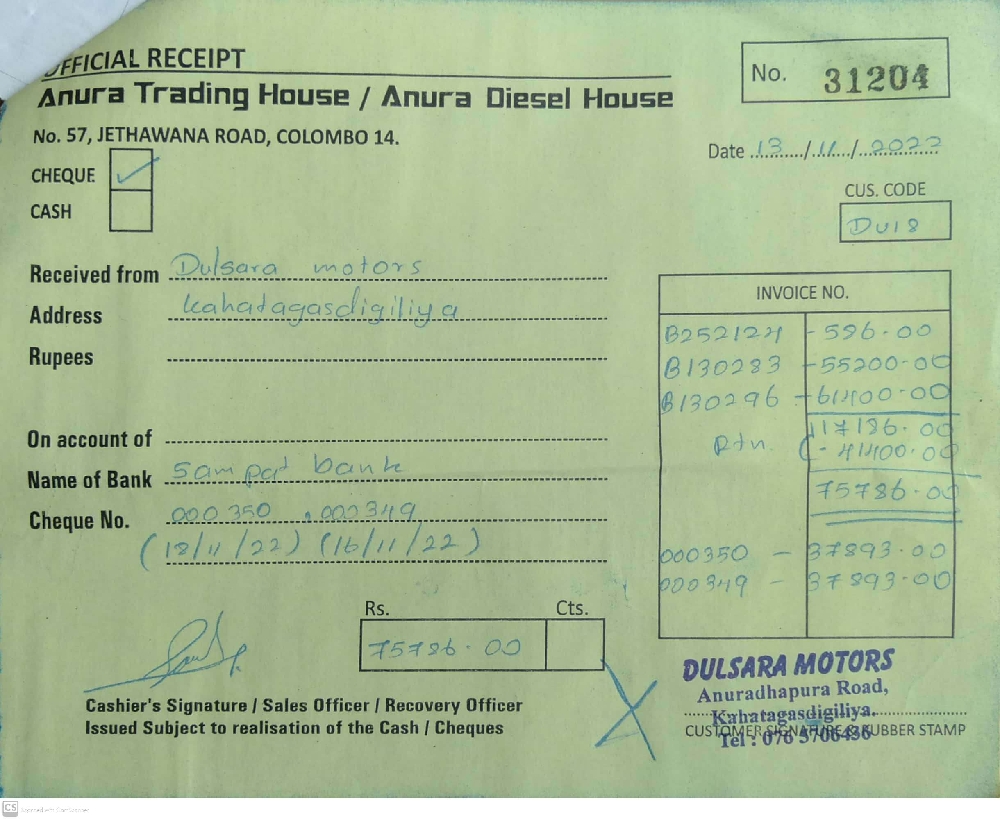 OFFICIAL RECEIPT
No. 31204
Anura Trading House / Anura Diesel House
No. 57, JETHAWANA ROAD, COLOMBO 14.
Date 13/11/2022
CHEQUE ✓
CASH
CUS. CODE
DU18
Received from Dulsara motors
Address kahatagasdigiliya
Rupees
On account of
Name of Bank Sampat bank
Cheque No. 000350 , 000349
(18/11/22) (16/11/22)
INVOICE NO.
B252124 - 586.00
B130283 - 55200-00
B130296 - 61400-00
117186.00
Rtn. (- 41400.00
75786.00
000350 - 37893.00
000349 - 37893.00
Rs. Cts.
75786.00
Cashier's Signature / Sales Officer / Recovery Officer
Issued Subject to realisation of the Cash / Cheques
DULSARA MOTORS
Anuradhapura Road,
Kahatagasdigiliya.
CUSTOMER SIGNATURE & RUBBER STAMP
Tel : 076
CS